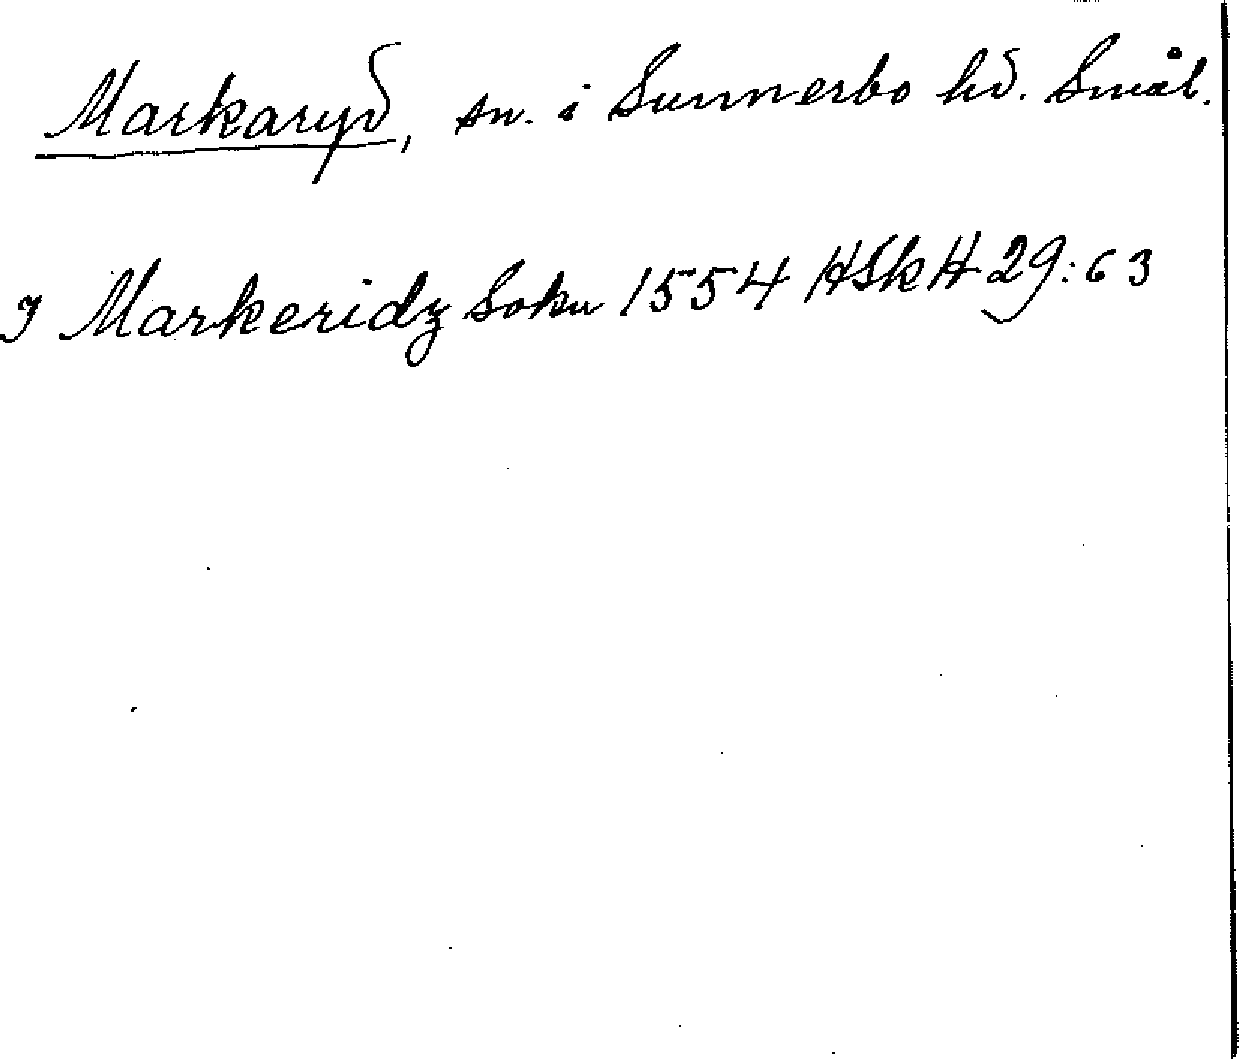 Markaryd, sn. i Sunnerbo hd. Smål.
J Markeridz Sokn 1554 HSkH 29:63